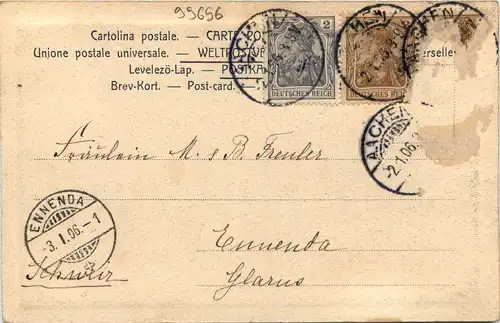 95656
Cartolina postale. — CARTE PO
Unione postale universale. — WELTPOSTV
erselles
Levelező-Lap. — POSTKA
Brev-Kort. — Post-card. —
2
DEUTSCHES REICH
DEUTSCHES REICH
AACHEN
AACHEN
-2.1.06.
Fräulein M. & B. Freuler
Ennenda
Glarus
ENNENDA
-3.I.06.-1
Schweiz